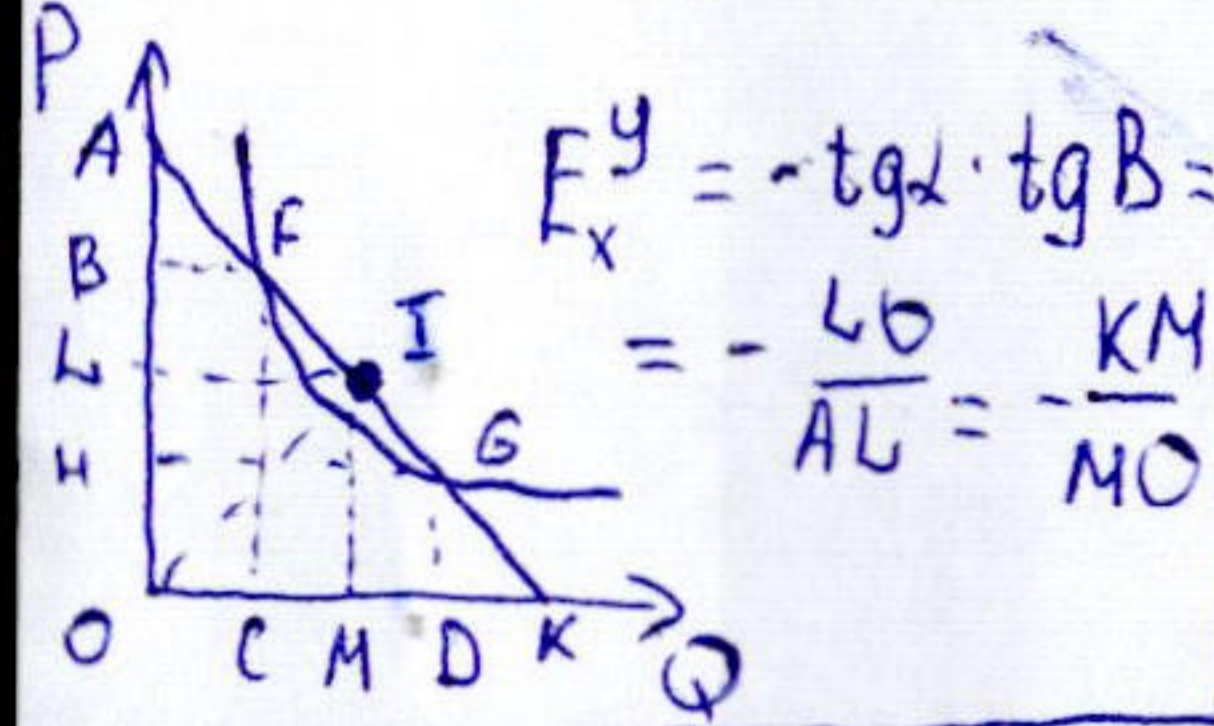 P
A
B
L
H
O
F
I
G
C M D K
Q
E_x^y = -tgα · tgB =
= - LO/AL = - KM/MO